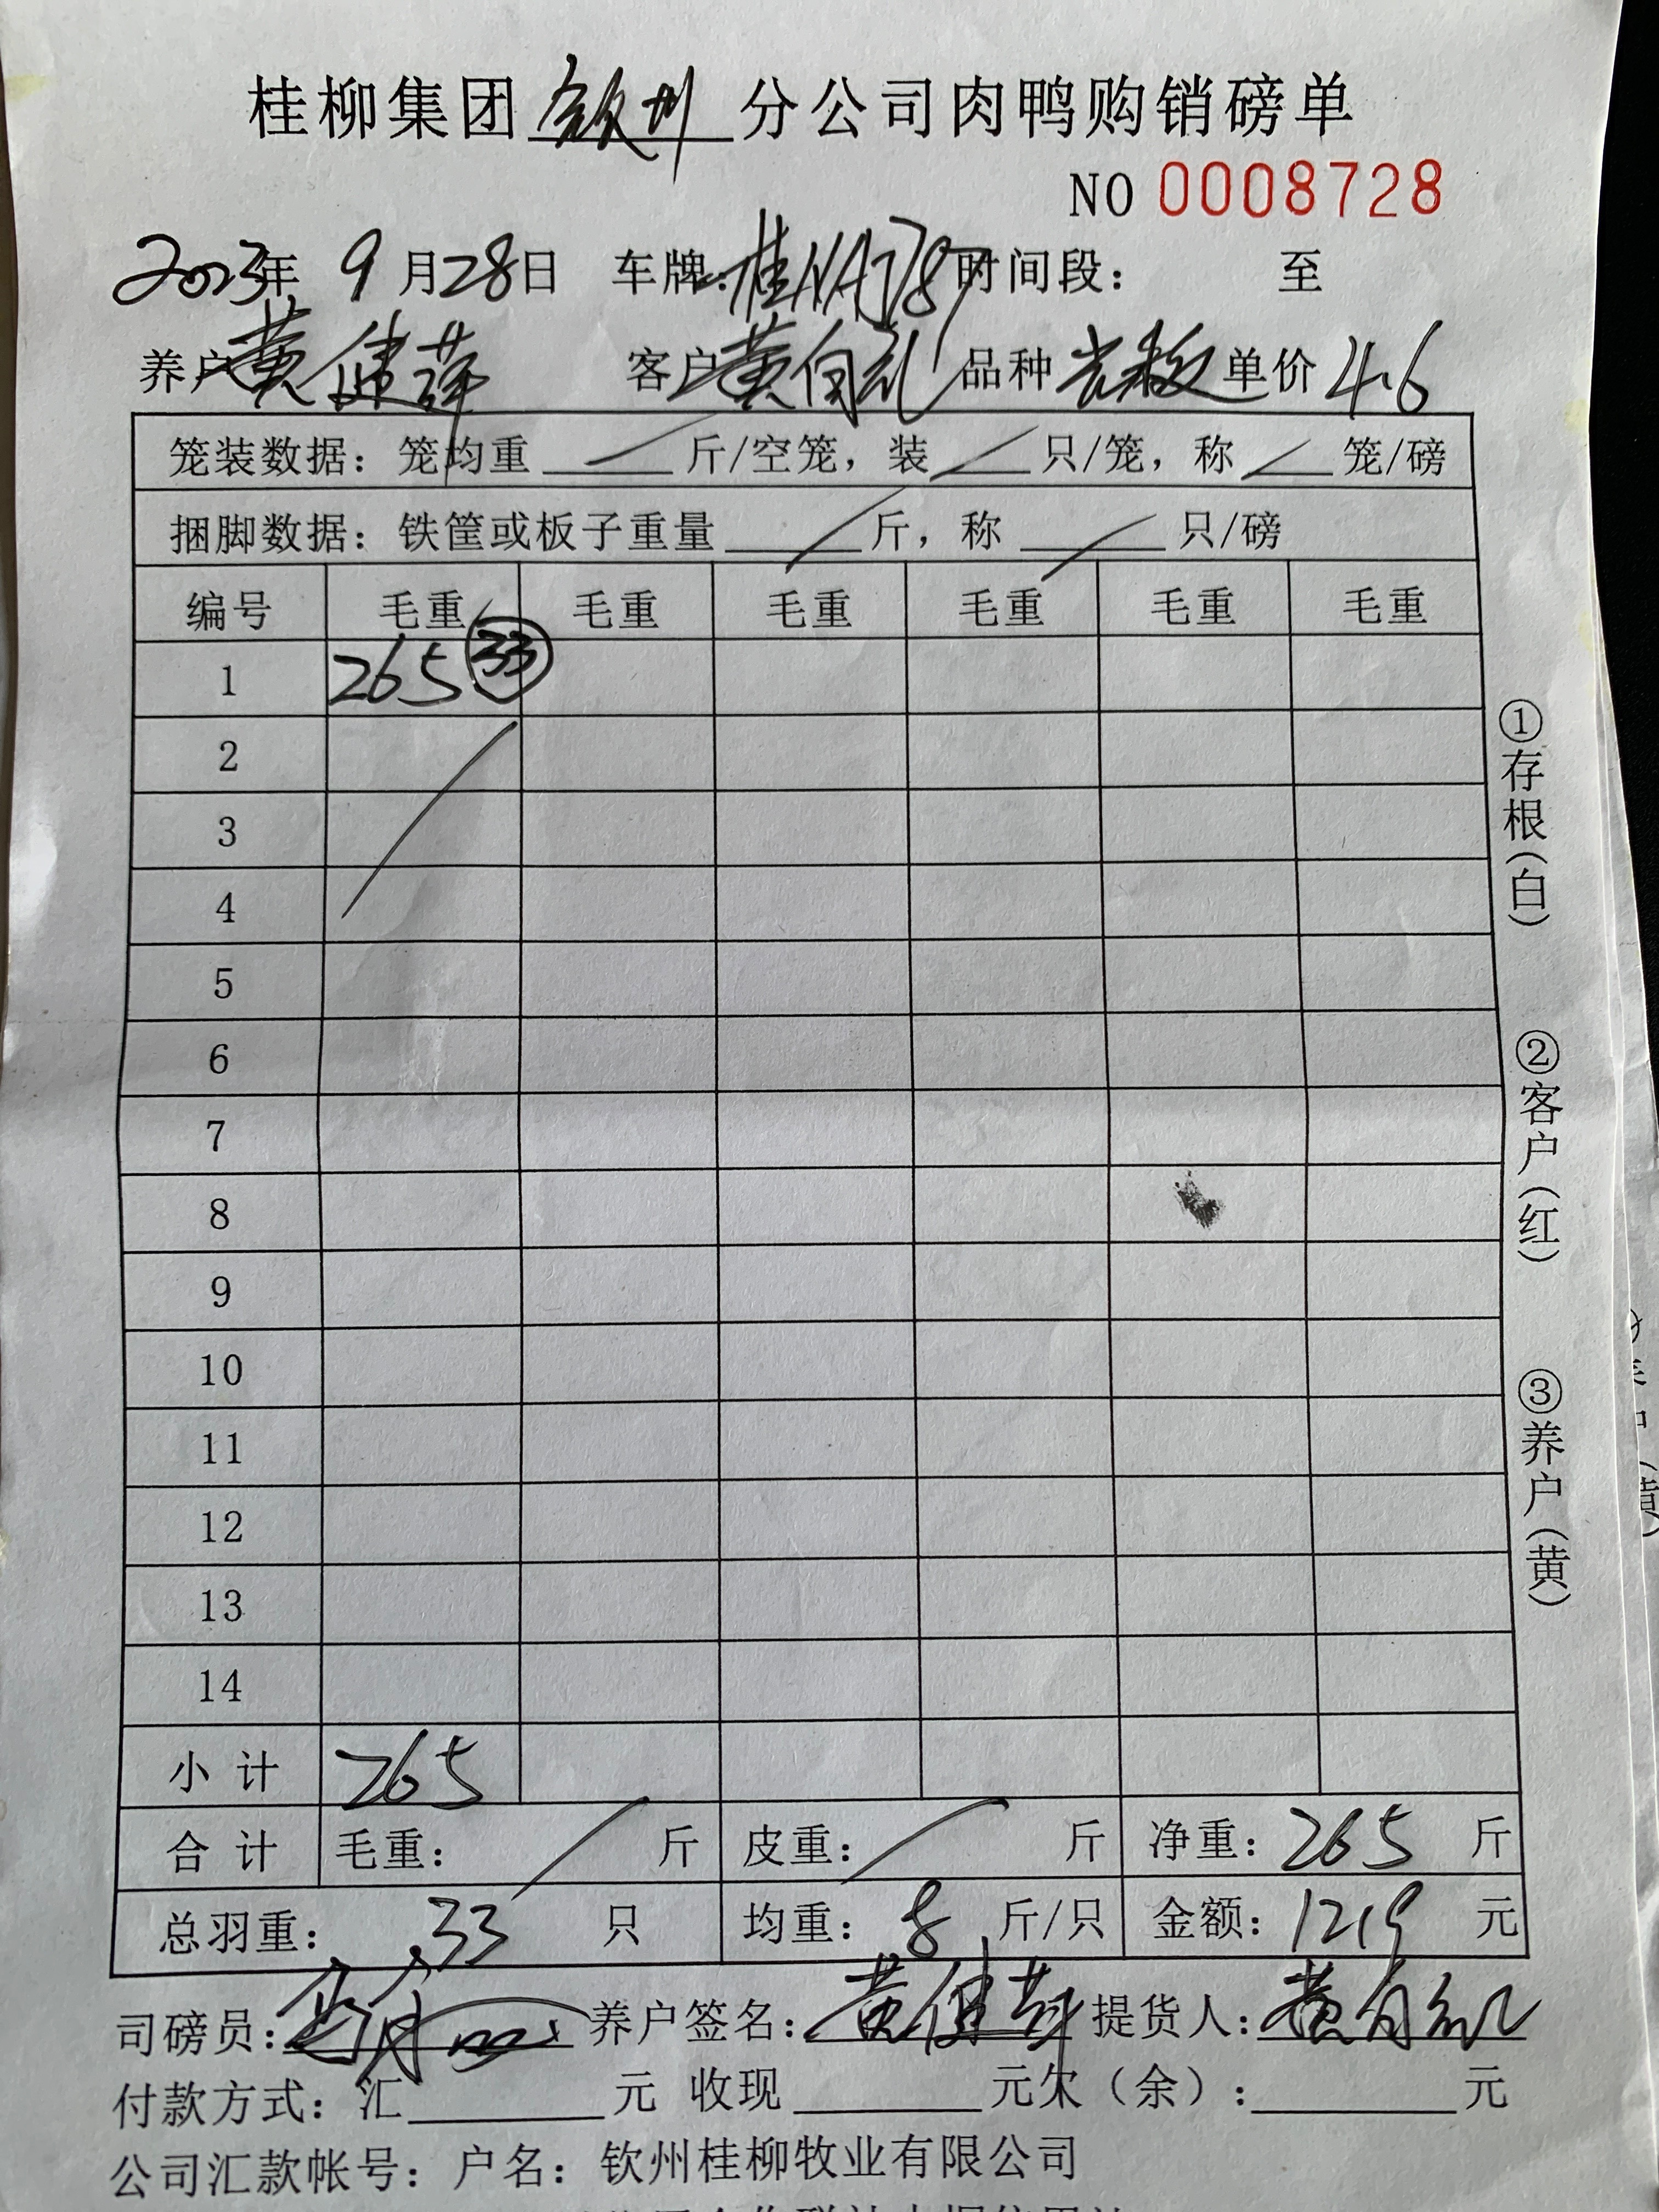 桂柳集团钦州分公司肉鸭购销磅单
NO 0008728
2023年 9月28日 车牌:桂NA787 时间段: 至
养户黄健萍 客户黄向礼 品种光板 单价4.6
笼装数据:笼均重 / 斤/空笼,装 / 只/笼,称 / 笼/磅
捆脚数据:铁筐或板子重量 / 斤,称 / 只/磅
编号 毛重 毛重 毛重 毛重 毛重 毛重
1 265 33
2
3
4
5
6
7
8
9
10
11
12
13
14
小计 265
合计 毛重: / 斤 皮重: / 斤 净重:265 斤
总羽重:33 只 均重:8 斤/只 金额:1219 元
司磅员: 养户签名:黄健萍 提货人:黄向礼
付款方式:汇 元 收现 元欠(余): 元
公司汇款帐号:户名:钦州桂柳牧业有限公司
①存根(白)
②客户(红)
③养户(黄)